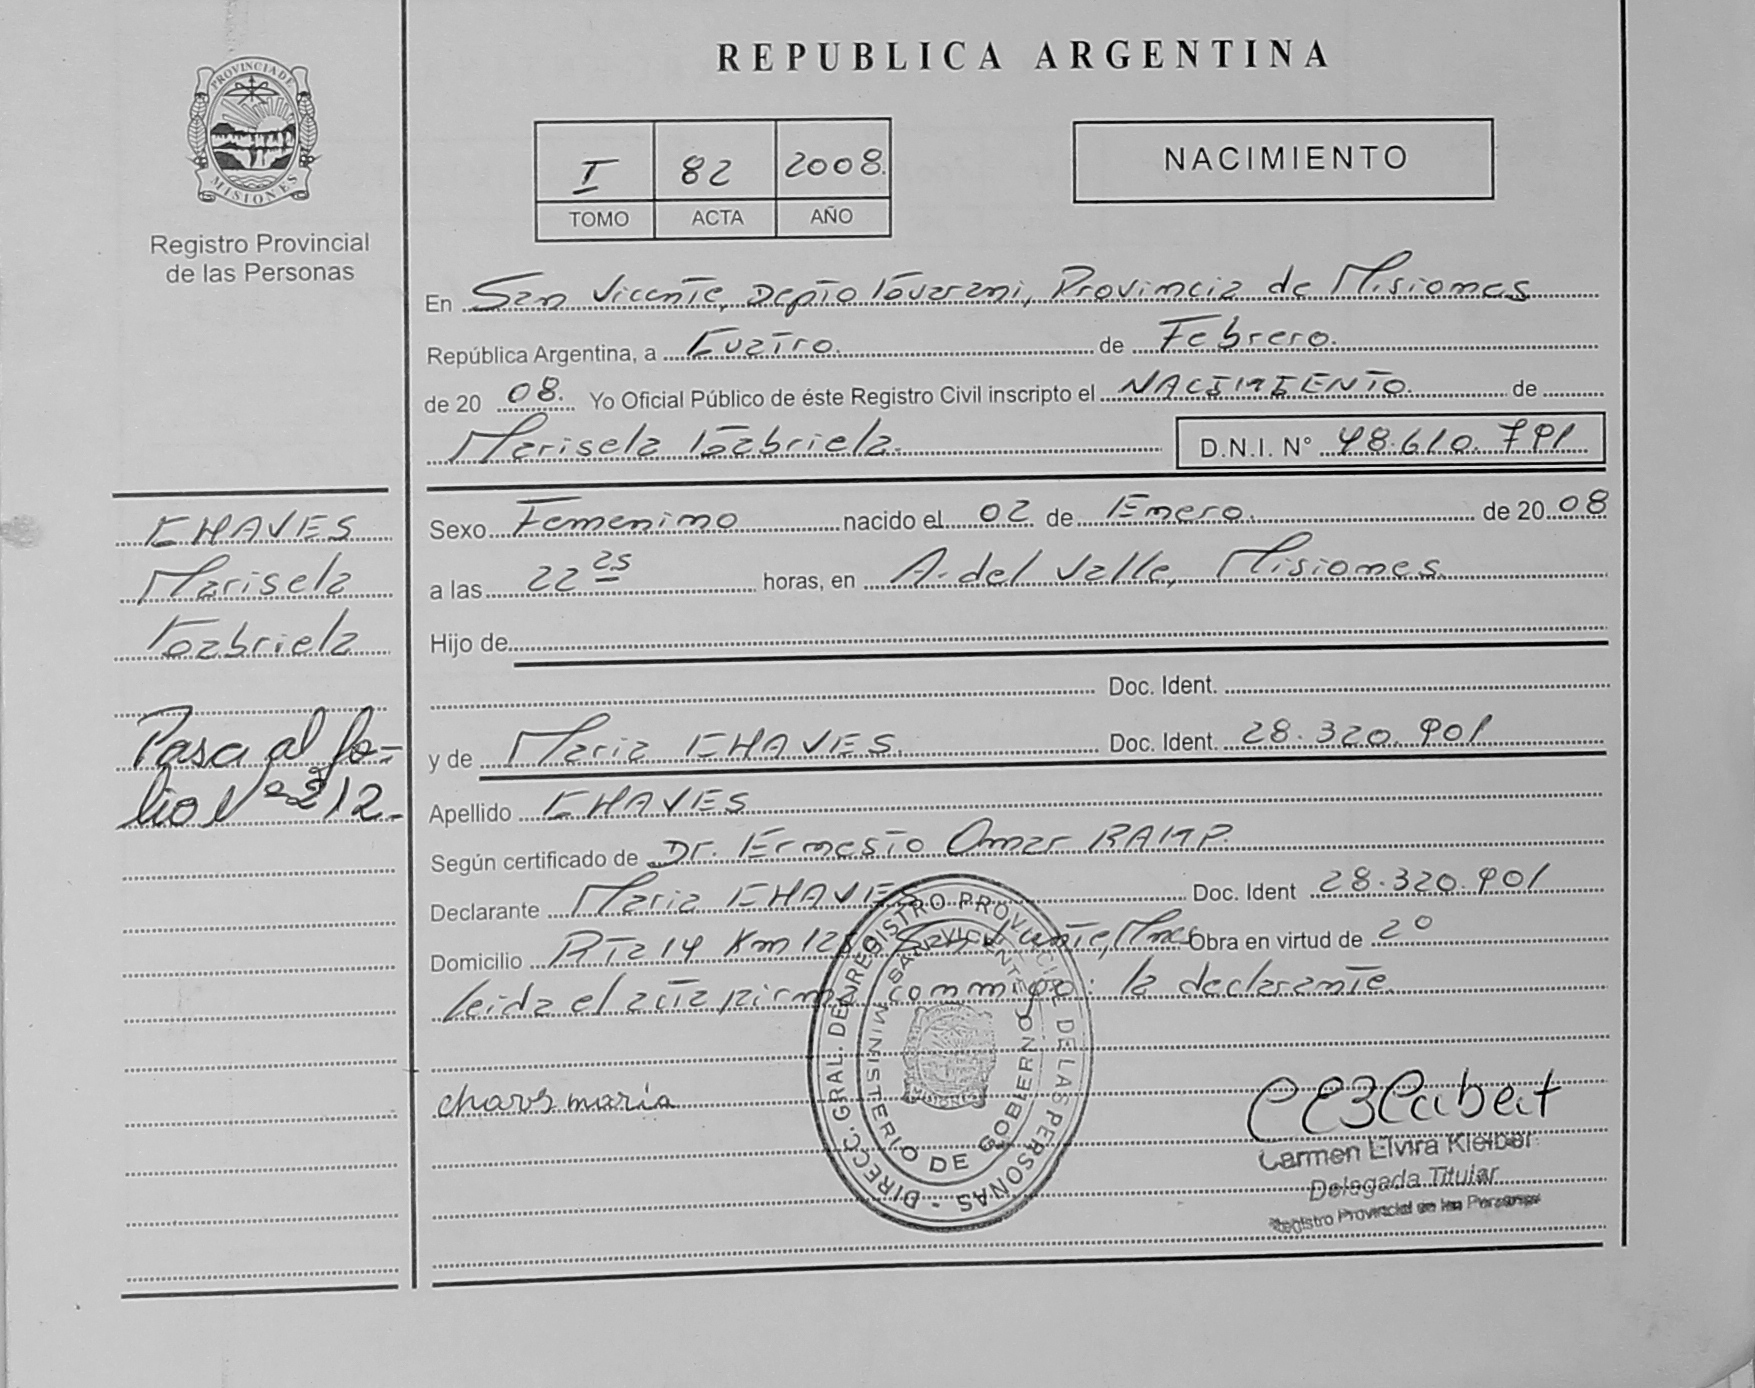 REPUBLICA ARGENTINA
PROVINCIA DE
MISIONES
Registro Provincial
de las Personas
I 82 2008.
TOMO ACTA AÑO
NACIMIENTO
En San Vicente, Depto Guarani, Provincia de Misiones
República Argentina, a Cuatro. de Febrero.
de 20 08. Yo Oficial Público de éste Registro Civil inscripto el NACIMIENTO. de
Marisela Gabriela. D.N.I. N° 48.610.791
CHAVES
Marisela
Gabriela
Pasa al fo-
lio Nº 212.-
Sexo Femenino nacido el 02 de Enero. de 20 08
a las 22 25 horas, en A. del Valle, Misiones
Hijo de
Doc. Ident.
y de Maria CHAVES. Doc. Ident. 28.320.901
Apellido CHAVES
Según certificado de Dr. Ernesto Omar
Declarante Maria CHAVES Doc. Ident 28.320.901
Domicilio Rta 14 Km San Vicente, Mnes Obra en virtud de 2º
Leida el acta firma conmigo: la declarante.
chaves maria
DIRECC. GRAL. DE REGISTRO PROVINCIAL DE LAS PERSONAS -
MINISTERIO DE GOBIERNO
SAN VICENTE
Carmen Elvira Kleibat
Delegada Titular
Registro Provincial de las Personas